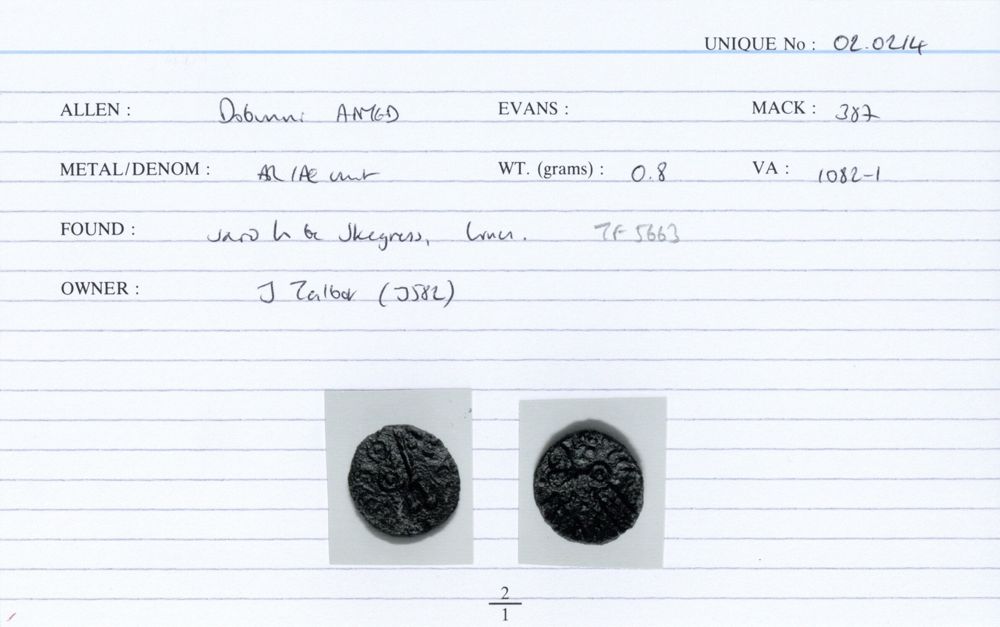 UNIQUE No : 02.0214
ALLEN : Dobunni ANTED EVANS : MACK : 387
METAL/DENOM : AR/AE unit WT. (grams) : 0.8 VA : 1082-1
FOUND : said to be Skegness, Lincs. TF 5663
OWNER : J Talbot (J582)
2
1